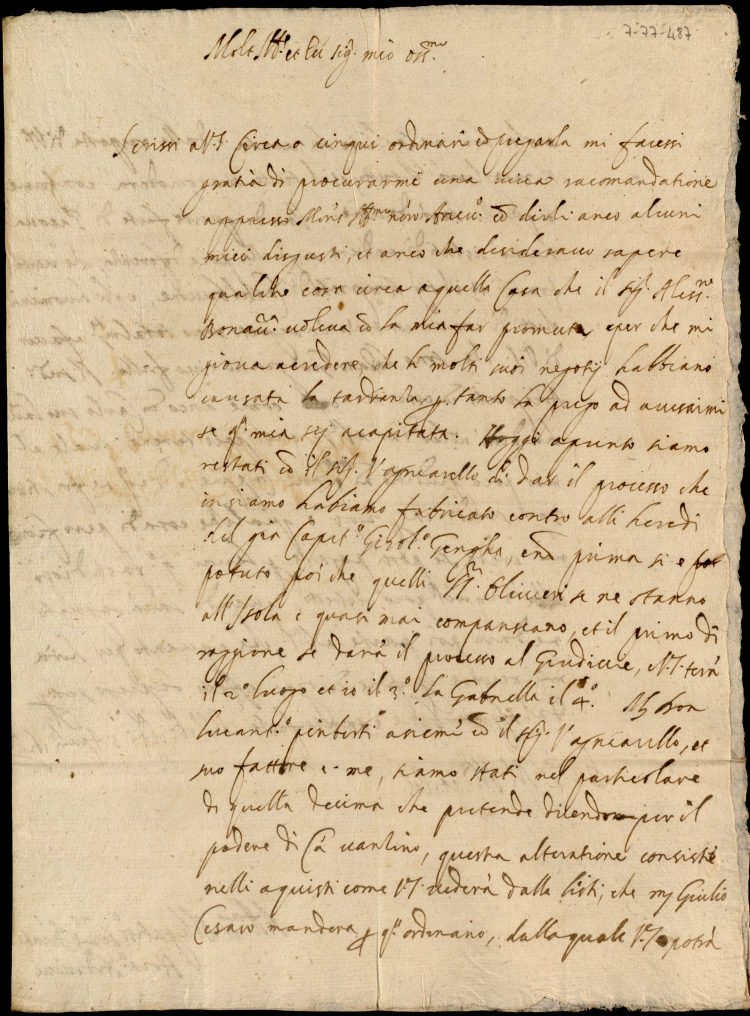 7-77-487
Molt Ill.re et Ecc. sig.r mio oss.mo
Scrissi a V.S. Circa a cinque ordinarii co pregarla mi facessi
gratia di procurarmi una viva racomandatione
appresso Mons.r Ill.mo nōro co dirli anco alcuni
miei disgusti, et anco che desideravo sapere
qualche cosa circa a quella Casa che il sig.r Aless.ro
voleva co la mia far promuta e per che mi
giova a credere che li molti suoi negotij habbiano
causata la tardanza p. tanto la prego ad avisarmi
se q.a mia sij acapitata. Hoggi apunto siamo
restati co il sig.r Vagnarello di dar il processo che
insiamo habiamo fabricato contro alli heredi
del gia Capit.o Girol.o Gengha, ne prima si e
potuto poi che quelli SS.ri Olivieri se ne stanno
all'Isola e quasi mai compariscano, et il primo dì
raggione se darà il processo al Giudicie, V.S. terà
il 2.o luogo et io il 3.o la Gabriella il 4.o Ms Don
Lucant.o asiemi co il sig.r Vagnarello, et
suo fattore e me, siamo stati nel particolare
di quella decima che pretende per il
podere di Cà vanlino, questa alteratione consiste
nelli aquisti come V.S. vederà dalla lista, che ms Giulio
Cesare manderà p q.o ordinario, dalla quale V.S. potrà